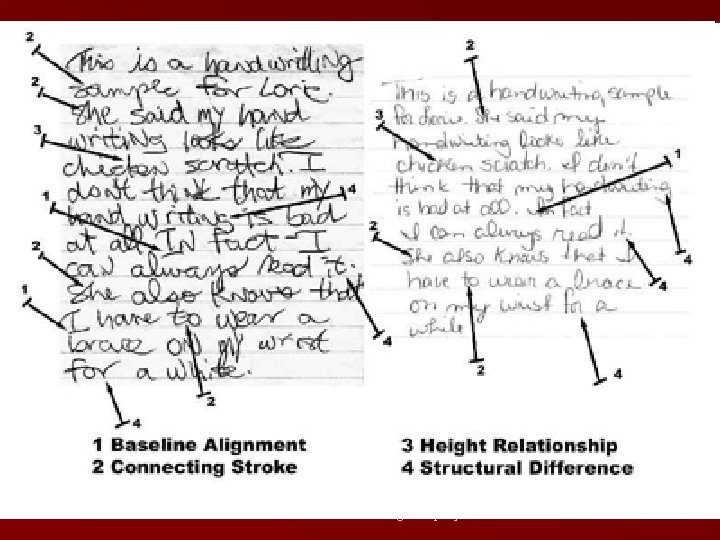 This is a handwritting
sample for Lorie.
She said my hand
writing looks like
chicken scratch. I
don't think that my
hand writing is bad
at all. IN fact - I
can always read it.
She also Knows that
I have to wear a
brace on my wrist
for a while.
This is a handwriting sample
for She said my
handwriting looks like
chicken scratch. I don't
think that my handwriting
is bad at all. In fact
I can always read it.
She also knows that I
have to wear a brace
on my wrist for a
while
2
2
3
1
2
1
4
4
2
4
2
3
1
2
4
4
2
4
1 Baseline Alignment
2 Connecting Stroke
3 Height Relationship
4 Structural Difference